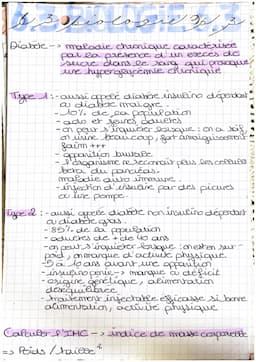 Diabète -> maladie chronique caractérisée
par la présence d'un excès de
sucre dans le sang qui provoque
une hyperglycémie chronique
Type 1 : - aussi appelé diabète insulino dépendant
ou diabète maigre.
- 10% de la population
- ado et jeunes adultes
- on peut s'inquiéter lorsque : on a soif,
on urine beaucoup, fort amaigrissement
faim +++
- apparition brutale
- l'organisme ne reconnait plus les cellules
beta du pancréas.
maladie auto immune.
- injection d'insuline par des piqures
ou une pompe.
Type 2 : - aussi appelé diabète non insulino dépendant
ou diabète gras.
- 85% de la population
- adultes de + de 40 ans
- on peut s'inquiéter lorsque : on est en sur-
poid, on manque d'activité physique.
- 5 à 10 ans avant une apparition
- insulinopénie -> manque ou déficit
- origine génétique, alimentation
déséquilibrée
- traitement injectable efficace si bonne
alimentation, activité physique
Calculer l'IMC -> indice de masse corporelle
=> Poids / taille²